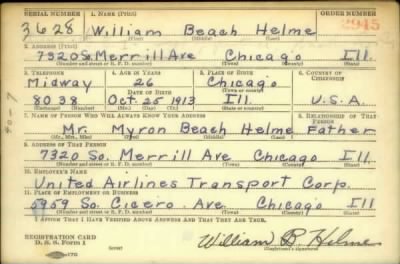 SERIAL NUMBER 1. NAME (Print) ORDER NUMBER
3628 William Beach Helme 2945
(First) (Middle) (Last)
2. ADDRESS (Print)
7320 So. Merrill Ave Chicago Ill.
(Number and street or R. F. D. number) (Town) (County) (State)
3. TELEPHONE 4. AGE IN YEARS 5. PLACE OF BIRTH 6. COUNTRY OF CITIZENSHIP
Midway 26 Chicago
DATE OF BIRTH (Town or county)
8038 Oct. 25 1913 Ill. U.S.A.
(Exchange) (Number) (Mo.) (Day) (Yr.) (State or country)
7. NAME OF PERSON WHO WILL ALWAYS KNOW YOUR ADDRESS 8. RELATIONSHIP OF THAT PERSON
Mr. Myron Beach Helme Father
(Mr., Mrs., Miss) (First) (Middle) (Last)
9. ADDRESS OF THAT PERSON
7320 So. Merrill Ave Chicago Ill
(Number and street or R. F. D. number) (Town) (County) (State)
10. EMPLOYER'S NAME
United Airlines Transport Corp.
11. PLACE OF EMPLOYMENT OR BUSINESS
5959 So. Cicero Ave. Chicago Ill
(Number and street or R. F. D. number) (Town) (County) (State)
I AFFIRM THAT I HAVE VERIFIED ABOVE ANSWERS AND THAT THEY ARE TRUE.
REGISTRATION CARD
D. S. S. Form 1
William B. Helme
(Registrant's signature)